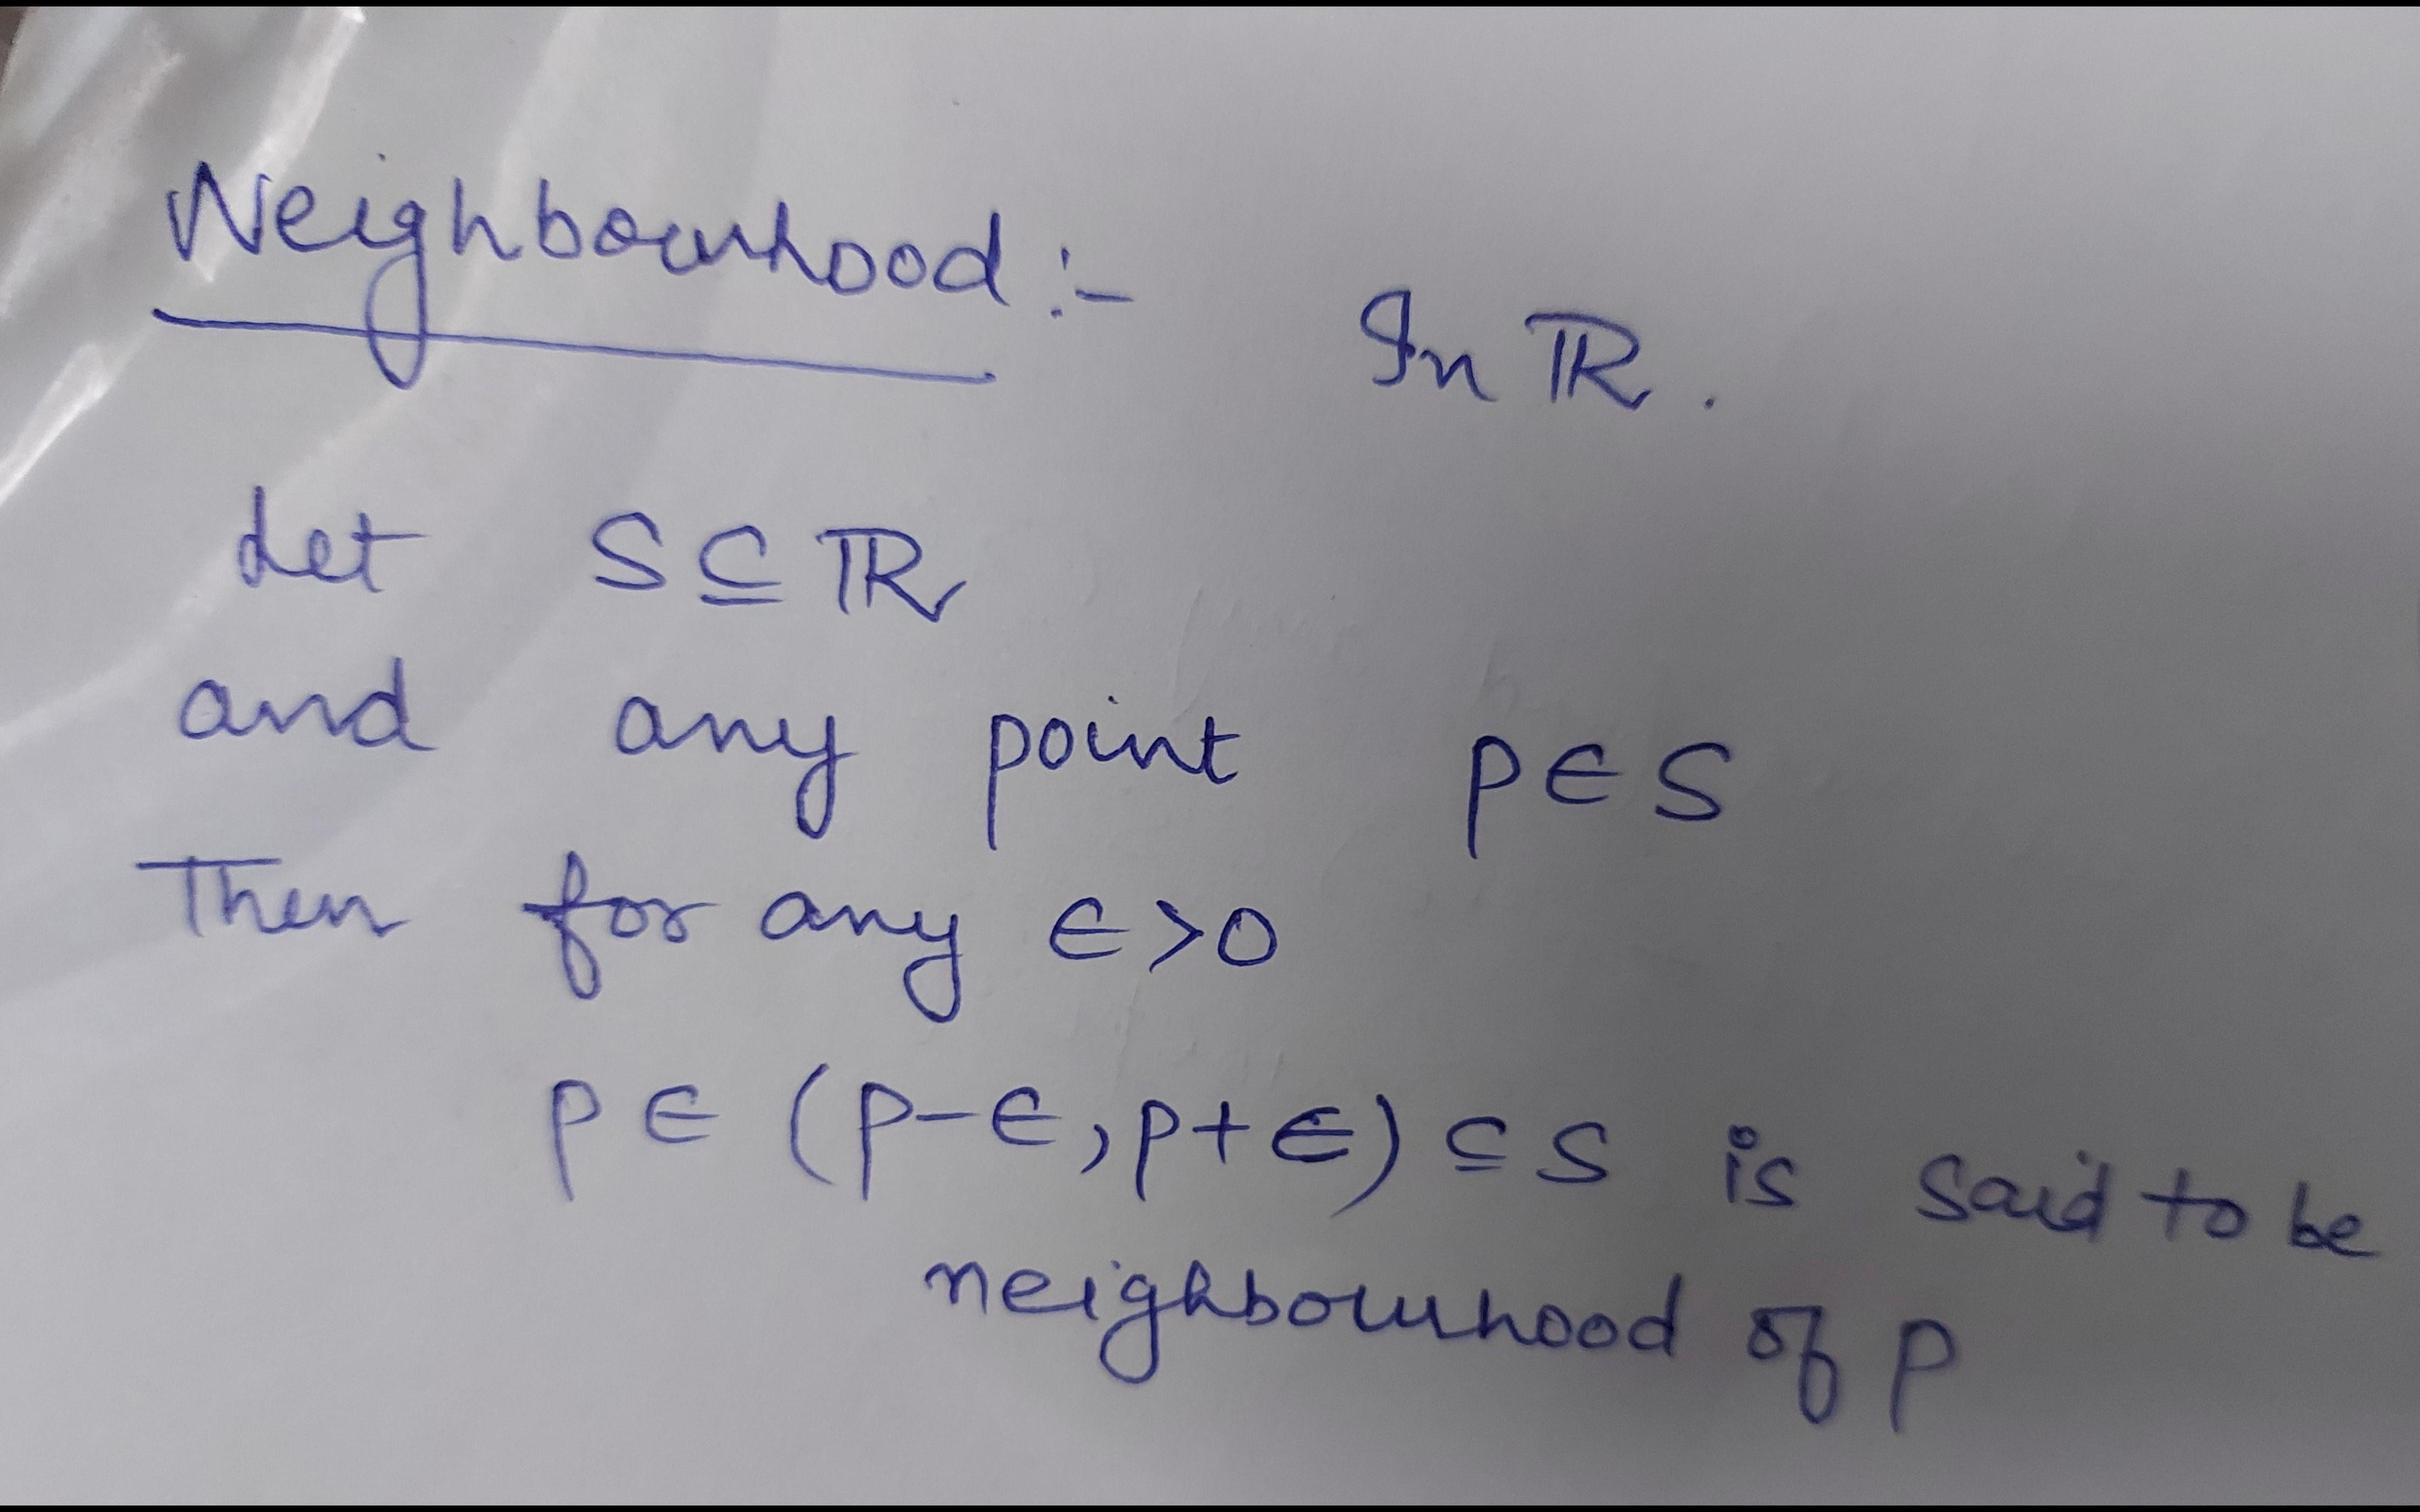 Neighbourhood :- In ℝ.
Let S ⊆ ℝ
and any point p ∈ S
Then for any ϵ > 0
p ∈ (p-ϵ, p+ϵ) ⊆ S is said to be
neighbourhood of p